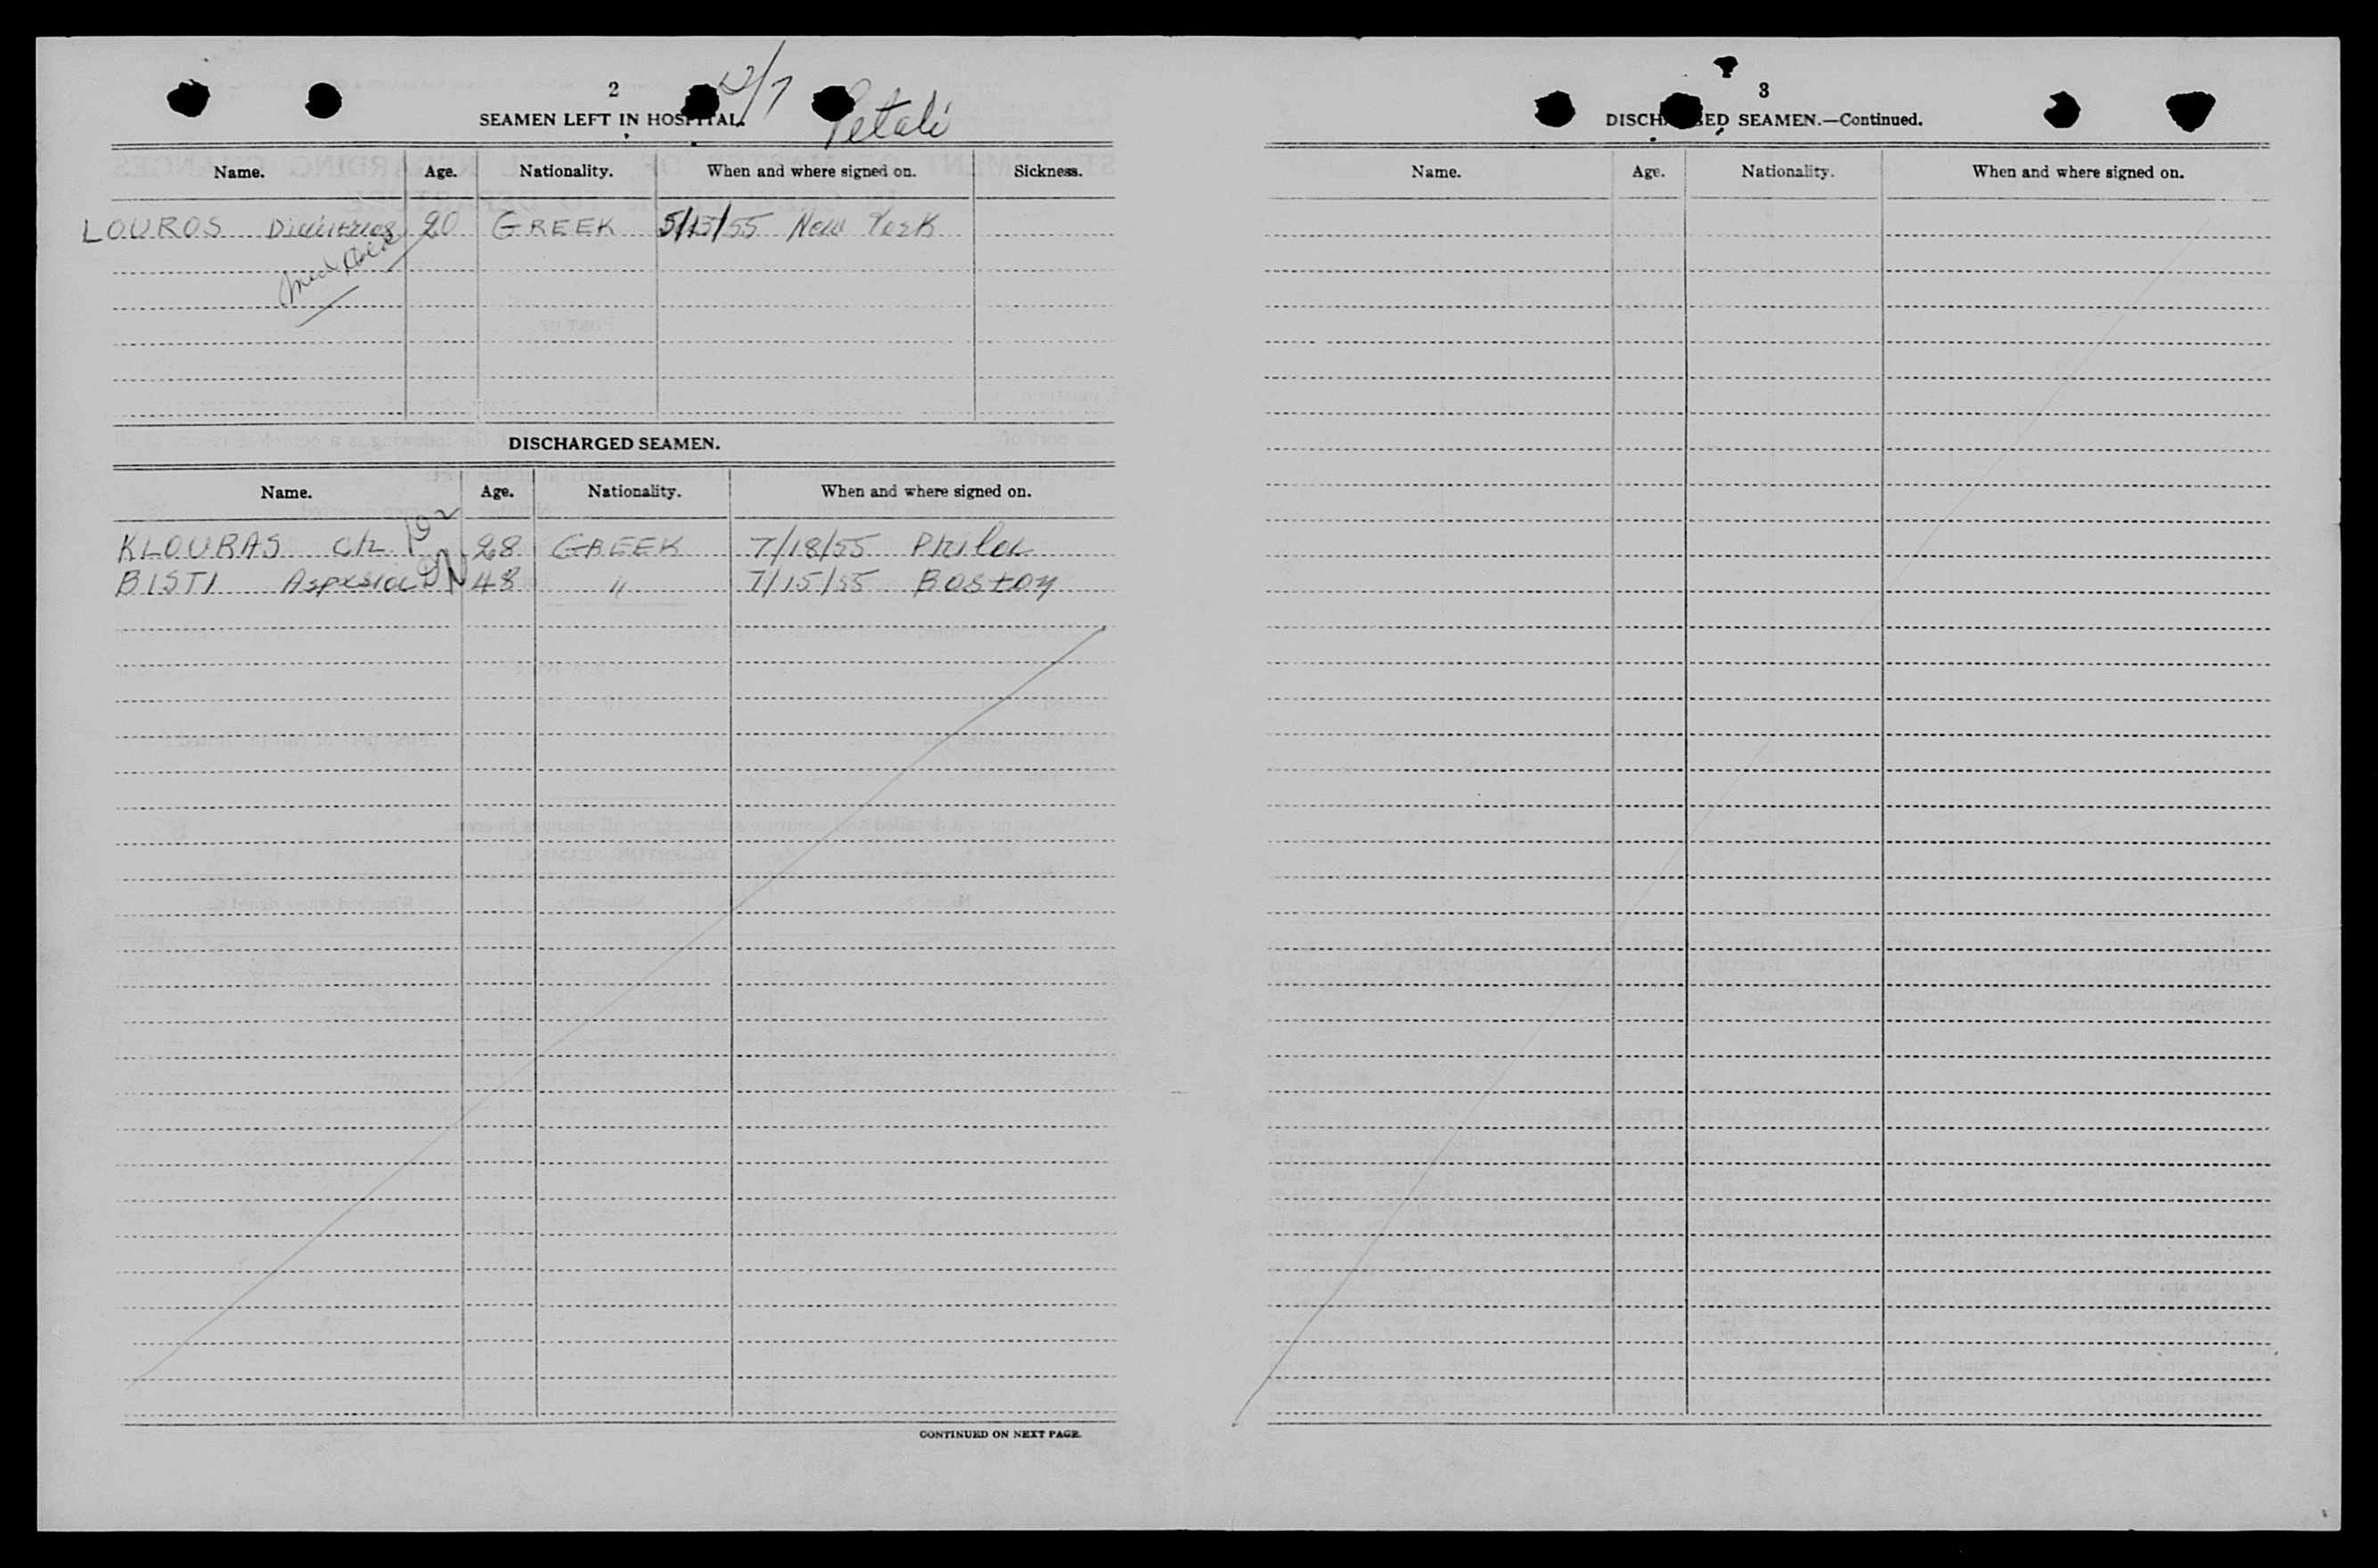 2
12/7
Petali
SEAMEN LEFT IN HOSPITAL.
Name. Age. Nationality. When and where signed on. Sickness.
LOUROS Dimitrios 20 GREEK 5/15/55 New York
DISCHARGED SEAMEN.
Name. Age. Nationality. When and where signed on.
KLOURAS Ch 28 GREEK 7/18/55 Phila
BISTI Aspasia 48 〃 7/15/55 Boston
CONTINUED ON NEXT PAGE.
3
DISCHARGED SEAMEN.—Continued.
Name. Age. Nationality. When and where signed on.